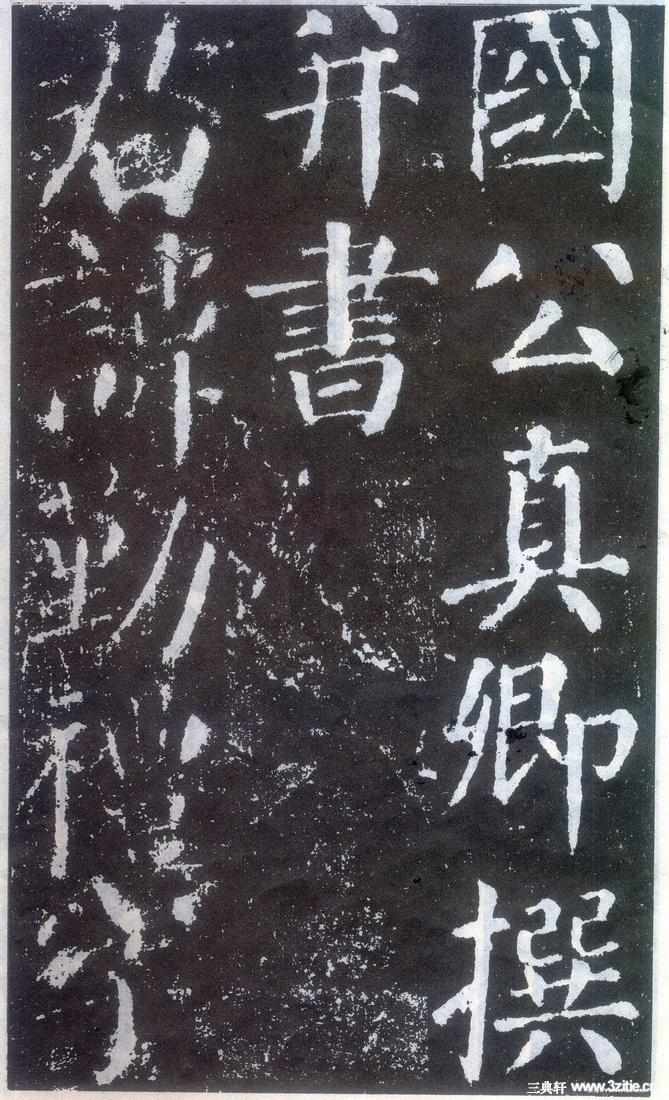 國公真卿撰
并書
君諱勤禮字
三典轩 www.3zitie.c